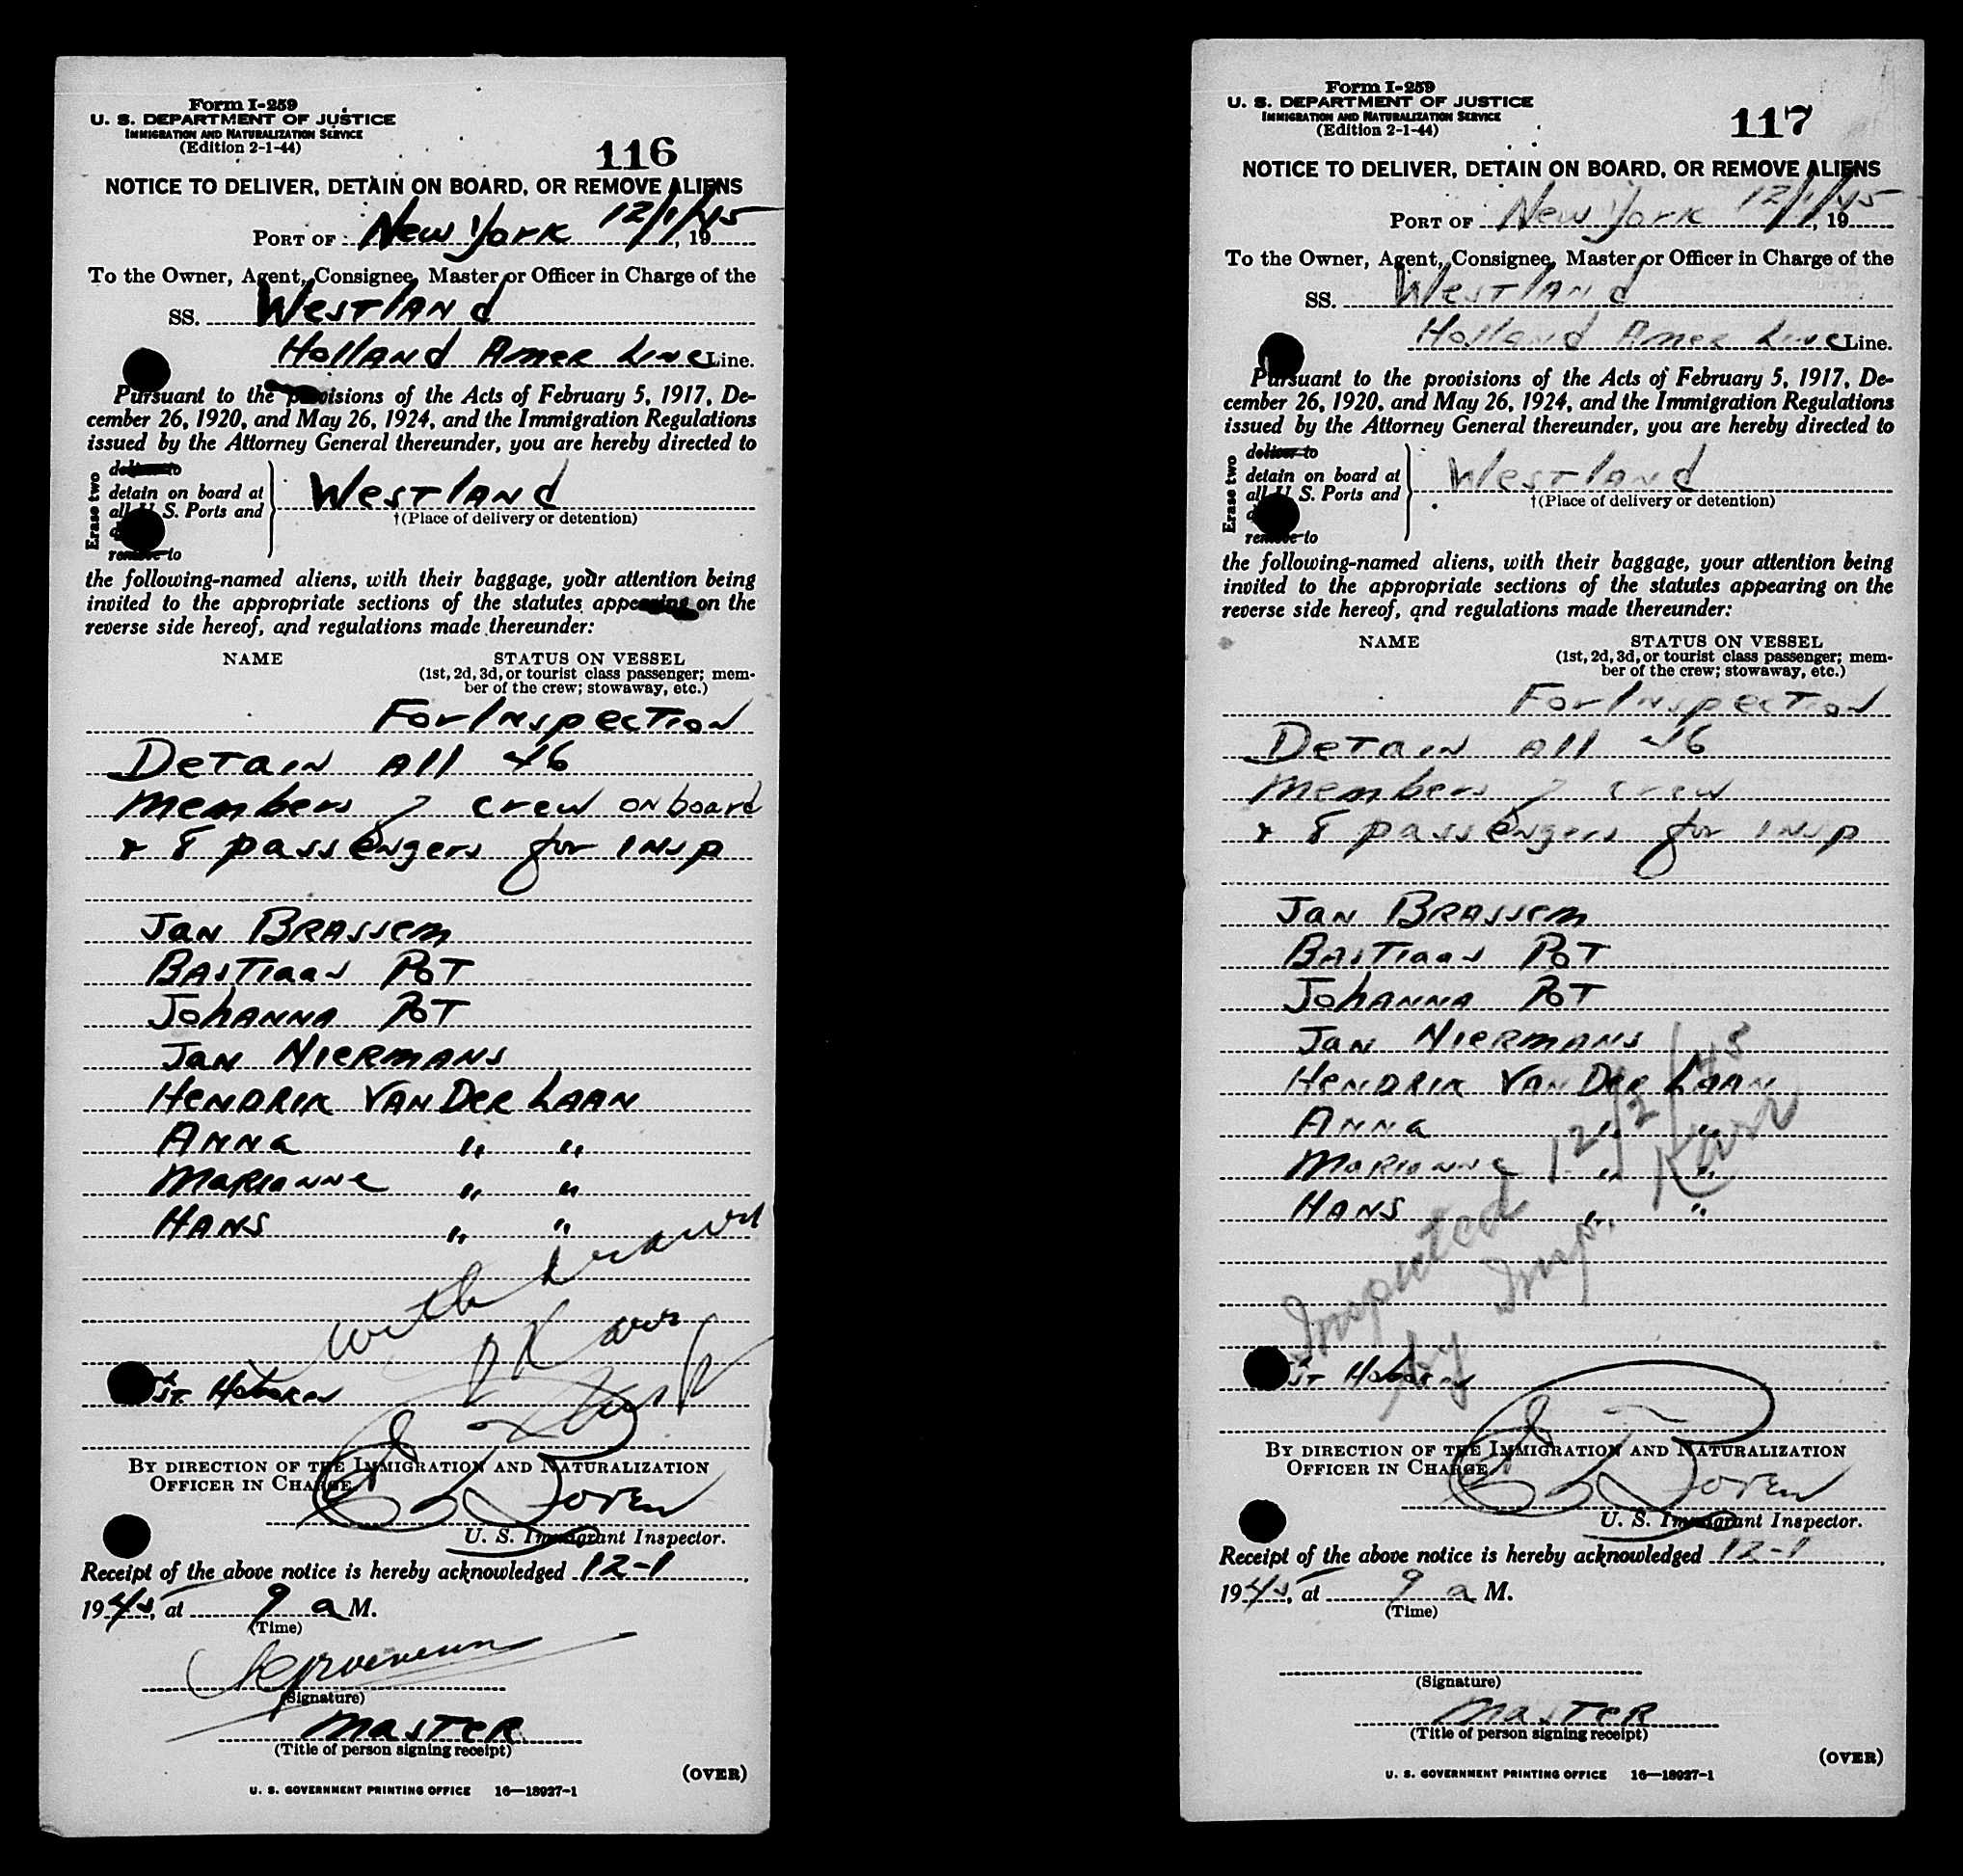 Form I-259
U. S. DEPARTMENT OF JUSTICE
IMMIGRATION AND NATURALIZATION SERVICE
(Edition 2-1-44)
116
NOTICE TO DELIVER, DETAIN ON BOARD, OR REMOVE ALIENS
PORT OF New York 12/1/45, 19
To the Owner, Agent, Consignee, Master or Officer in Charge of the
SS. Westland
Holland Amer Line Line.
Pursuant to the provisions of the Acts of February 5, 1917, De-
cember 26, 1920, and May 26, 1924, and the Immigration Regulations
issued by the Attorney General thereunder, you are hereby directed to
Erase two
deliver to
detain on board at
all U. S. Ports and
remove to
Westland
†(Place of delivery or detention)
the following-named aliens, with their baggage, your attention being
invited to the appropriate sections of the statutes appearing on the
reverse side hereof, and regulations made thereunder:
NAME STATUS ON VESSEL
(1st, 2d, 3d, or tourist class passenger; mem-
ber of the crew; stowaway, etc.)
For Inspection
Detain all 46
members of crew on board
& 8 passengers for insp
Jan Brassem
Bastiaas Pot
Johanna Pot
Jan Niermans
Hendrik Van Der Laan
Anna " "
Marianne " "
Hans " "
withdrawn
Karr
St. Hoboken
BY DIRECTION OF THE IMMIGRATION AND NATURALIZATION
OFFICER IN CHARGE
U. S. Immigrant Inspector.
Receipt of the above notice is hereby acknowledged 12-1
1945, at 9 a M.
(Time)
(Signature)
Master
(Title of person signing receipt)
(OVER)
U. S. GOVERNMENT PRINTING OFFICE 16—18927-1
Form I-259
U. S. DEPARTMENT OF JUSTICE
IMMIGRATION AND NATURALIZATION SERVICE
(Edition 2-1-44)
117
NOTICE TO DELIVER, DETAIN ON BOARD, OR REMOVE ALIENS
PORT OF New York 12/1/45, 19
To the Owner, Agent, Consignee, Master or Officer in Charge of the
SS. Westland
Holland Amer Line Line.
Pursuant to the provisions of the Acts of February 5, 1917, De-
cember 26, 1920, and May 26, 1924, and the Immigration Regulations
issued by the Attorney General thereunder, you are hereby directed to
Erase two
deliver to
detain on board at
all U. S. Ports and
remove to
Westland
†(Place of delivery or detention)
the following-named aliens, with their baggage, your attention being
invited to the appropriate sections of the statutes appearing on the
reverse side hereof, and regulations made thereunder:
NAME STATUS ON VESSEL
(1st, 2d, 3d, or tourist class passenger; mem-
ber of the crew; stowaway, etc.)
For Inspection
Detain all 46
members of crew
& 8 passengers for insp
Jan Brassem
Bastiaas Pot
Johanna Pot
Jan Niermans
Hendrik Van Der Laan
Anna " "
Marianne " "
Hans " "
Inspected 12/2/45
by Insp. Karr
St Hoboken
BY DIRECTION OF THE IMMIGRATION AND NATURALIZATION
OFFICER IN CHARGE
U. S. Immigrant Inspector.
Receipt of the above notice is hereby acknowledged 12-1
1945, at 9 a M.
(Time)
(Signature)
Master
(Title of person signing receipt)
(OVER)
U. S. GOVERNMENT PRINTING OFFICE 16—18927-1